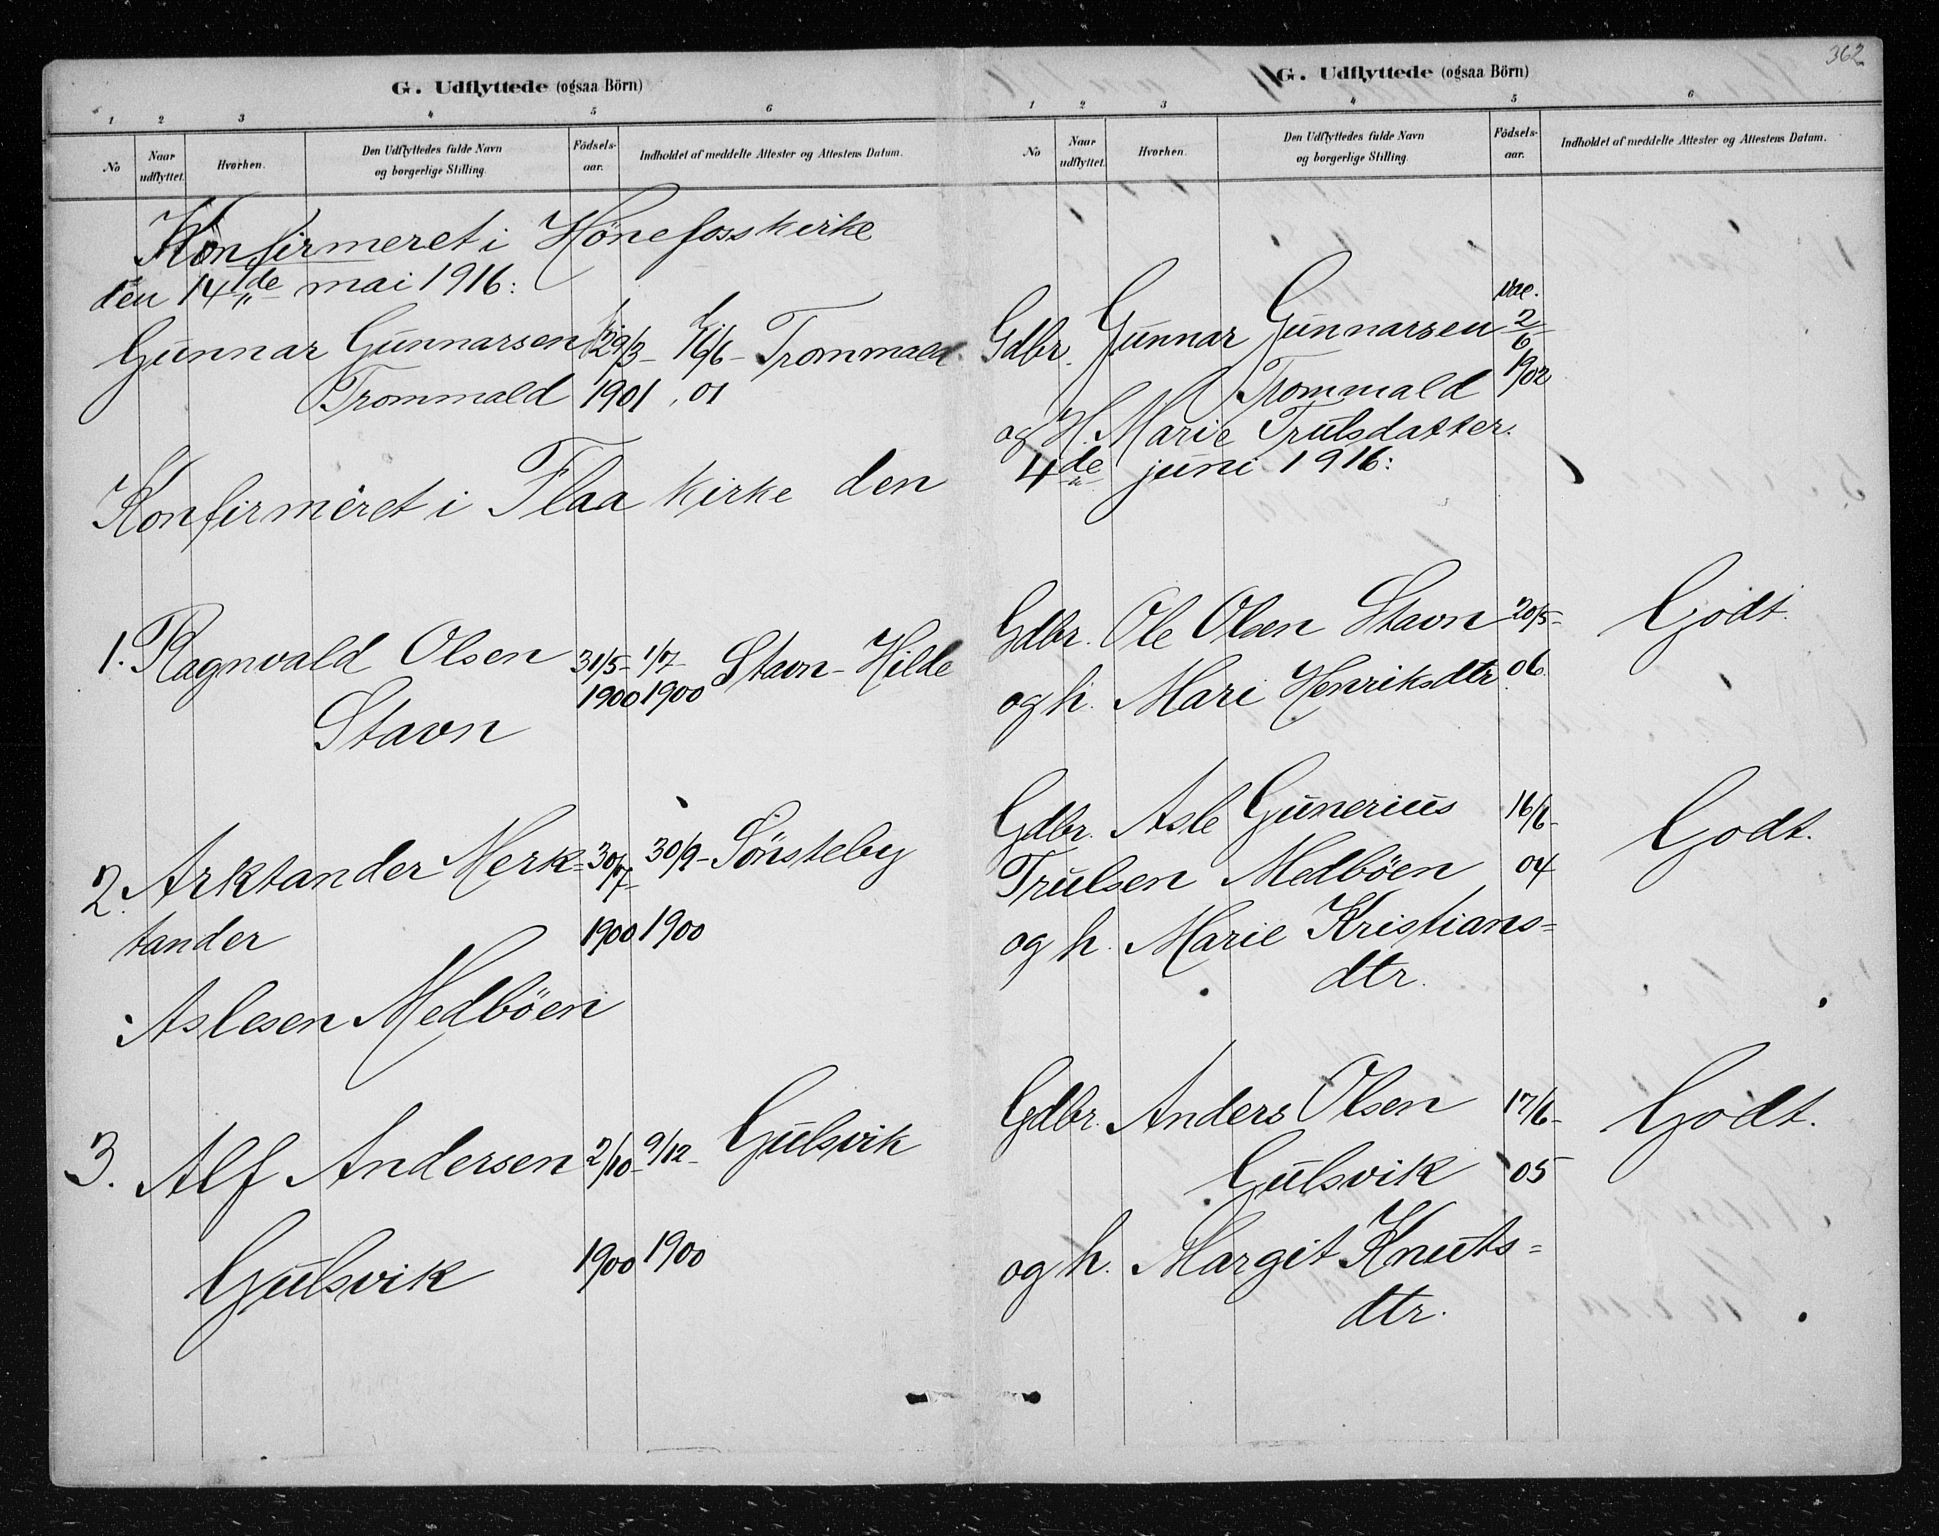 362
G. Udflyttede (ogsaa Börn)
1 2 3 4 5 6
No
Naar udflyttet.
Hvorhen.
Den Udflyttedes fulde Navn og borgerlige Stilling.
Fødselsaar.
Indholdet af meddelte Attester og Attestens Datum.
Konfirmeret i Hønefoss kirke
den 14de mai 1916:
Gunnar Gunnarsen 29/3 - 16/6 - Trommald.
Trommald 1901 . 01
Konfirmeret i Flaa kirke den
1. Ragnvald Olsen 31/5- 1/7- Stavn - Hilde
1900 1900
Stavn
2. Arktander Merk- 30/7- 30/9- Sönsteby
tander 1900 1900
Aslesen Medböen
3. Alf Andersen 2/10- 9/12- Gulsvik
Gulsvik 1900 1900
G. Udflyttede (ogsaa Börn)
1 2 3 4 5 6
No
Naar udflyttet.
Hvorhen.
Den Udflyttedes fulde Navn og borgerlige Stilling.
Fødselsaar.
Indholdet af meddelte Attester og Attestens Datum.
vac.
Gdbr. Gunnar Gunnarsen 2/6
Trommald 1902
og H. Marie Trulsdatter.
4de juni 1916:
Gdbr. Ole Olsen Stavn 20/5- Godt.
og h. Mari Henriksdtr. 06.
Gdbr. Asle Gunerius 16/6- Godt.
Trulsen Medböen 04
og h. Marie Kristians=
dtr.
Gdbr. Anders Olsen 17/6- Godt.
Gulsvik 05
og h. Margit Knuts=
dtr.